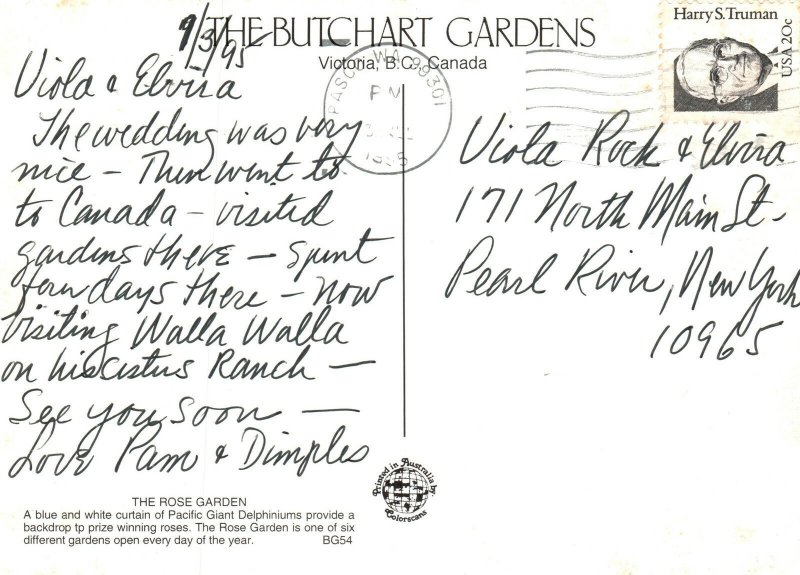 THE BUTCHART GARDENS
Victoria, B.C., Canada
9/3/95
Viola & Elvira
The wedding was very
nice - Then went to
to Canada - visited
gardens there - spent
few days there - now
visiting Walla Walla
on his sisters Ranch -
See you soon -
Love Pam & Dimples
THE ROSE GARDEN
A blue and white curtain of Pacific Giant Delphiniums provide a
backdrop tp prize winning roses. The Rose Garden is one of six
different gardens open every day of the year. BG54
Printed in Australia by
Colorscans
PASCO, WA 99301
PM
Harry S. Truman
USA 20c
Viola Rock & Elvira
171 North Main St.
Pearl River, New York
10965